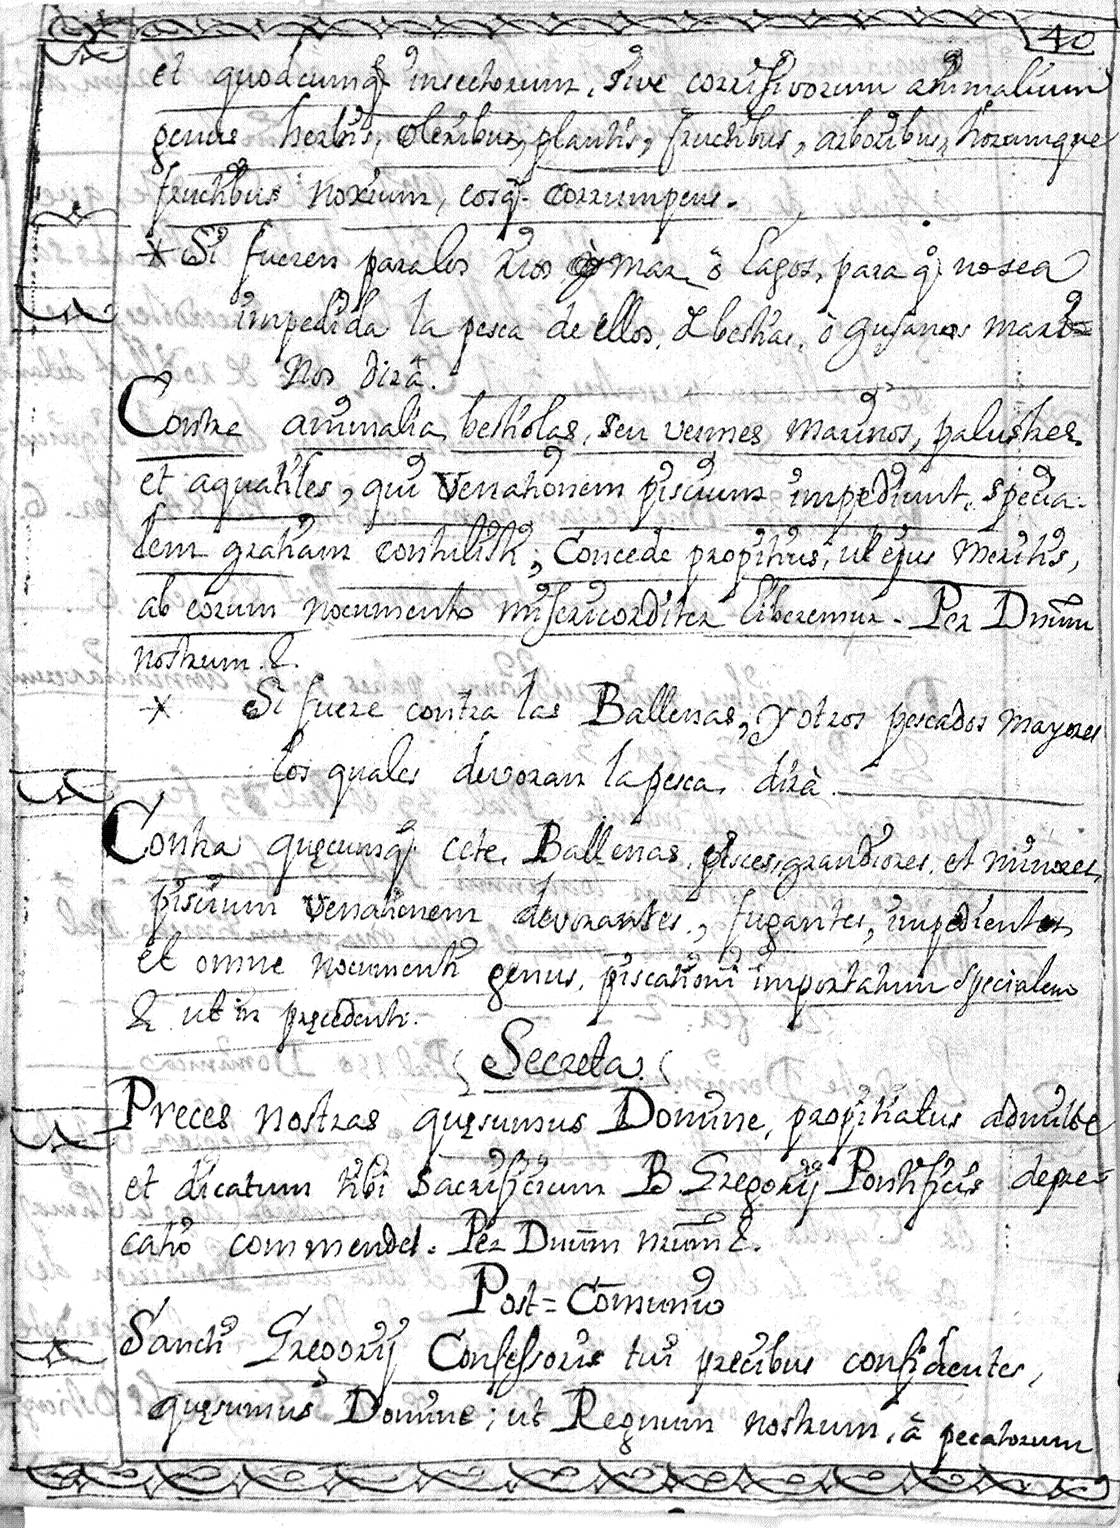 40
et quodcumq̃ insectorum, sive corrosivorum animalium
genus herbis, oleribus, plantis, fructibus, arboribus, horumque
fructibus noxium, eosq̃. corrumpens.
* Si fueren para los rios ò mar ò lagos, para q̃ no sea
impedida la pesca de ellos, & bestias, ò gusanos mari=
nos dirá.
Contra animalia, bestiolas, seu vermes marinos, palustres
et aquatiles, qui venationem piscium impediunt, specia-
lem gratiam contulisti; Concede propitius, ut ejus meritis,
ab eorum nocumento misericorditer liberemur. Per Dnũm
nostrum &.
* Si fuere contra las Ballenas, y otros pescados mayores
los quales devoran la pesca, dirà.
Contra quęcumq̃ cete, Ballenas, pisces, grandiores, et minores,
piscium venationem devorantes, fugantes, impedientes,
et omne nocumenti genus, piscationi importatum specialem
& ut in pręcedenti.
Secreta.
Preces nostras quęsumus Domine, propitiatus admitte
et dicatum tibi sacrificium B. Gregorij Pontificis depre=
catio commendet. Per Dnũm nrũm &.
Post=Comunio
Sancti Gregorij Confessoris tui precibus confidentes,
quęsumus Domine; ut Regnum nostrum, à pecatorum